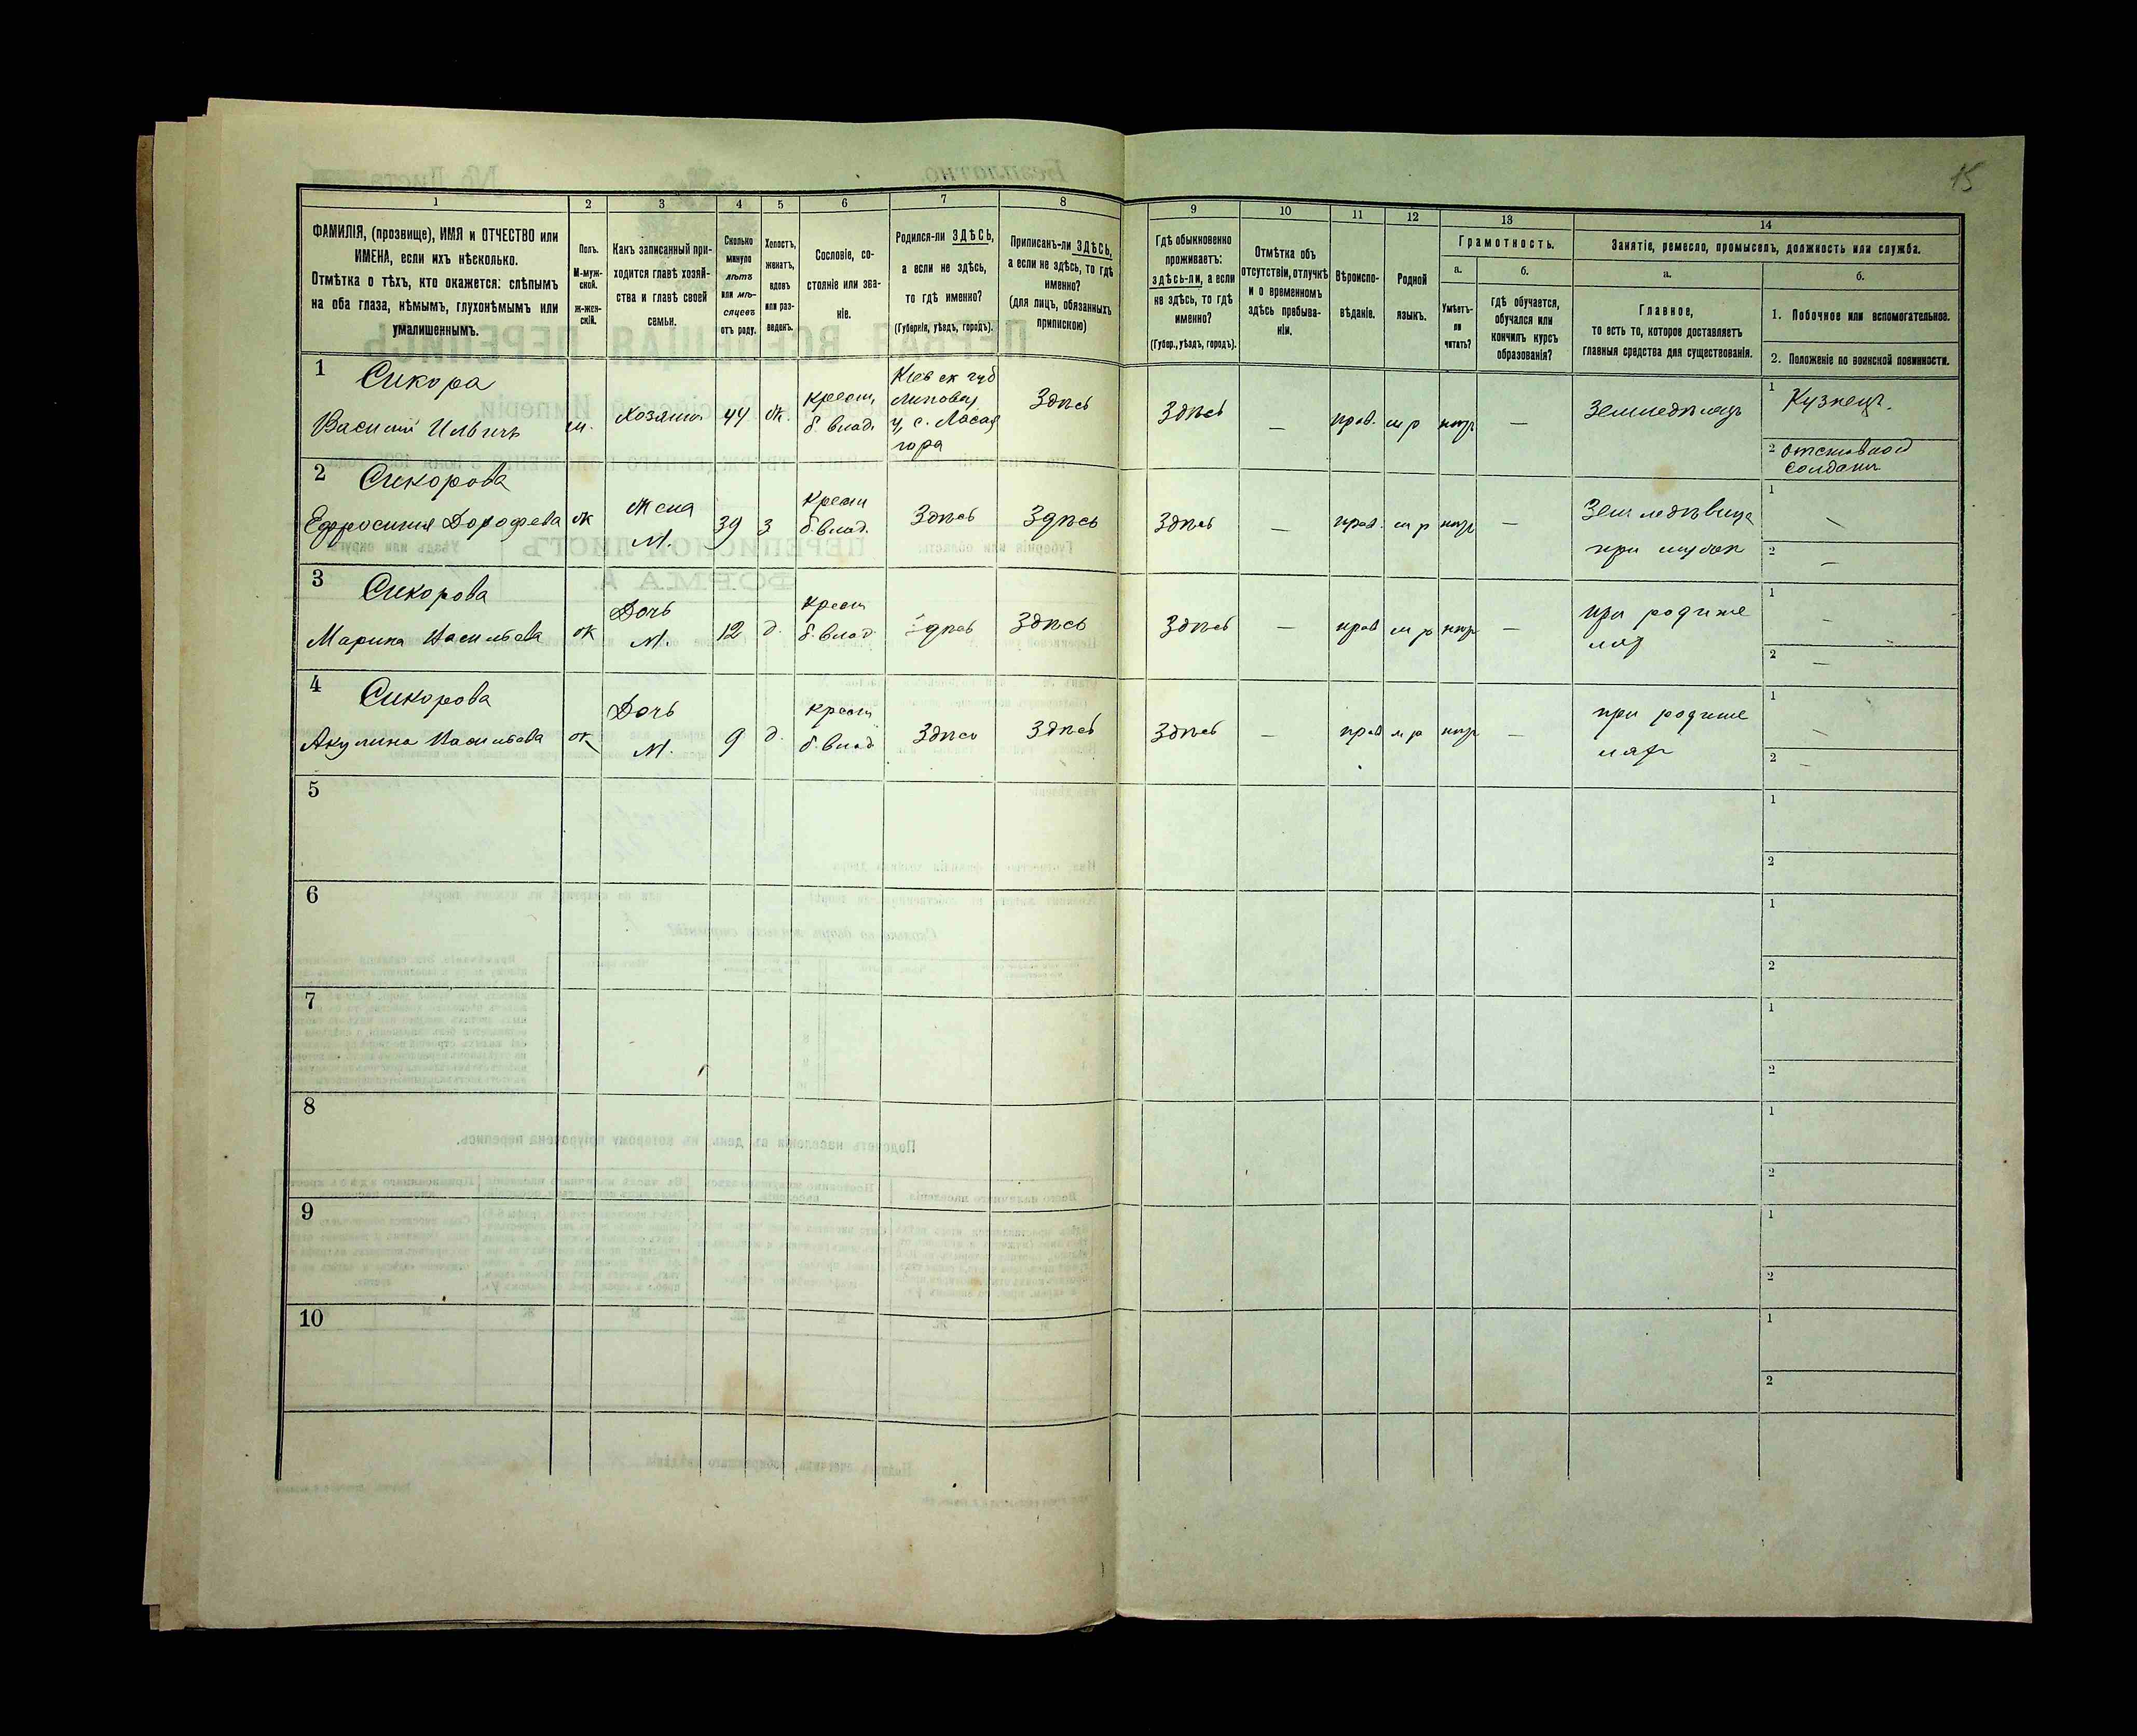 15
1 2 3 4 5 6 7 8 9 10 11 12 13 14
ФАМИЛІЯ, (прозвище), ИМЯ и ОТЧЕСТВО или
ИМЕНА, если ихъ нѣсколько.
Отмѣтка о тѣхъ, кто окажется: слѣпымъ
на оба глаза, нѣмымъ, глухонѣмымъ или
умалишеннымъ.
Полъ.
М-муж-
ской.
ж-жен-
скій.
Какъ записанный при-
ходится главѣ хозяй-
ства и главѣ своей
семьи.
Сколько
минуло
лѣтъ
или мѣ-
сяцевъ
отъ роду.
Холостъ,
женатъ,
вдовъ
или раз-
веденъ.
Сословіе, со-
стояніе или зва-
ніе.
Родился-ли ЗДѢСЬ,
а если не здѣсь,
то гдѣ именно?
(Губернія, уѣздъ, городъ).
Приписанъ-ли ЗДѢСЬ,
а если не здѣсь, то гдѣ
именно?
(для лицъ, обязанныхъ
припискою)
Гдѣ обыкновенно
проживаетъ:
здѣсь-ли, а если
не здѣсь, то гдѣ
именно?
(Губер., уѣздъ, городъ).
Отмѣтка объ
отсутствіи, отлучкѣ
и о временномъ
здѣсь пребыва-
ніи.
Вѣроиспо-
вѣданіе.
Родной
языкъ.
Грамотность.
а.
Умѣетъ-
ли
читать?
б.
гдѣ обучается,
обучался или
кончилъ курсъ
образованія?
Занятіе, ремесло, промыселъ, должность или служба.
а.
Главное,
то есть то, которое доставляетъ
главныя средства для существованія.
б.
1. Побочное или вспомогательное.
2. Положеніе по воинской повинности.
1 Сикора
Василій Ильичъ
м.
Хозяинъ
44
Ж.
крест.
б. влад.
Кіевск губ
Липовец
у, с. Лысая
гора
Здѣсь
Здѣсь
—
прав.
м р
нѣтъ
—
Земледѣлецъ
1 Кузнецъ.
2 отставной
солдатъ
2 Сикорова
Ефросинія Дорофева
ж
Жена
М.
39
З
крест
б влад.
Здѣсь
Здѣсь
Здѣсь
—
прав.
м р
нѣтъ
—
Земледѣлица
при мужѣ
1 —
2 —
3 Сикорова
Марина Васильева
ж
Дочь
М.
12
д.
крест
б. влад
Здѣсь
Здѣсь
Здѣсь
—
прав
м р
нѣтъ
—
при родите
ляхъ
1 —
2 —
4 Сикорова
Акулина Васильева
ж
Дочь
М.
9
д.
крест
б. влад
Здѣсь
Здѣсь
Здѣсь
—
прав
м р
нѣтъ
—
при родите
ляхъ
1 —
2 —
5
1
2
6
1
2
7
1
2
8
1
2
9
1
2
10
1
2